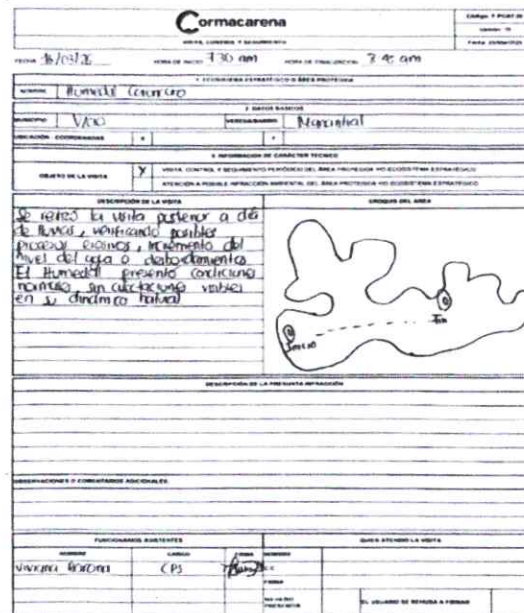 Cormacarena
VISITA, CONTROL Y SEGUIMIENTO
FECHA 16/03/26 HORA DE INICIO 7:30 am HORA DE FINALIZACIÓN 3:45 am
1. ECOSISTEMA ESTRATÉGICO O ÁREA PROTEGIDA
NOMBRE Humedal
2. DATOS BÁSICOS
MUNICIPIO V/cio VEREDA/BARRIO Manantial
UBICACIÓN - COORDENADAS
3. INFORMACIÓN DE CARÁCTER TÉCNICO
OBJETO DE LA VISITA
X VISITA, CONTROL Y SEGUIMIENTO PERIÓDICO DEL ÁREA PROTEGIDA Y/O ECOSISTEMA ESTRATÉGICO
ATENCIÓN A POSIBLE INFRACCIÓN AMBIENTAL DEL ÁREA PROTEGIDA Y/O ECOSISTEMA ESTRATÉGICO
DESCRIPCIÓN DE LA VISITA
Se realizó la visita posterior a día
de lluvias, verificando posibles
procesos erosivos, incremento del
nivel del agua o desbordamientos
El Humedal presentó condiciones
normales, sin afectaciones visibles
en su dinámica natural
CROQUIS DEL ÁREA
Inicio
Fin
DESCRIPCIÓN DE LA PRESUNTA INFRACCIÓN
OBSERVACIONES O COMENTARIOS ADICIONALES:
FUNCIONARIOS ASISTENTES
QUIEN ATENDIÓ LA VISITA
NOMBRE CARGO FIRMA
Viviana Barona CPS
NOMBRE
C.C.
FIRMA
NO HUBO PRESENCIA
EL USUARIO SE REHUSA A FIRMAR